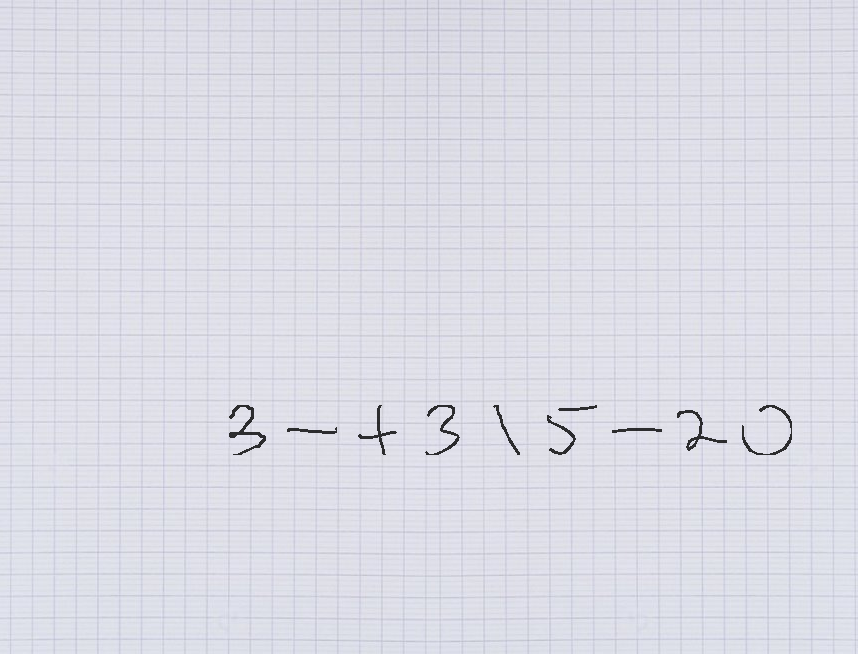 3 - + 3 \ 5 - 20